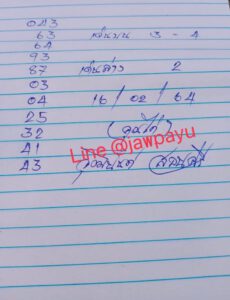 043
63 เด่นบน 3 - 4
64
93
87 เด่นล่าง 2
03
04 16/02/64
25
32
41 Line @jawpayu
43